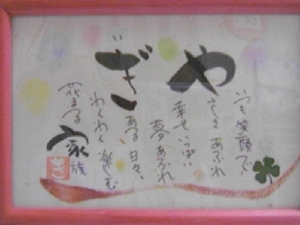 やぎ
いつも笑顔で
やさしさあふれ
幸せいっぱい
夢あふれ
ある日々、
わくわく楽しむ
花まる家族